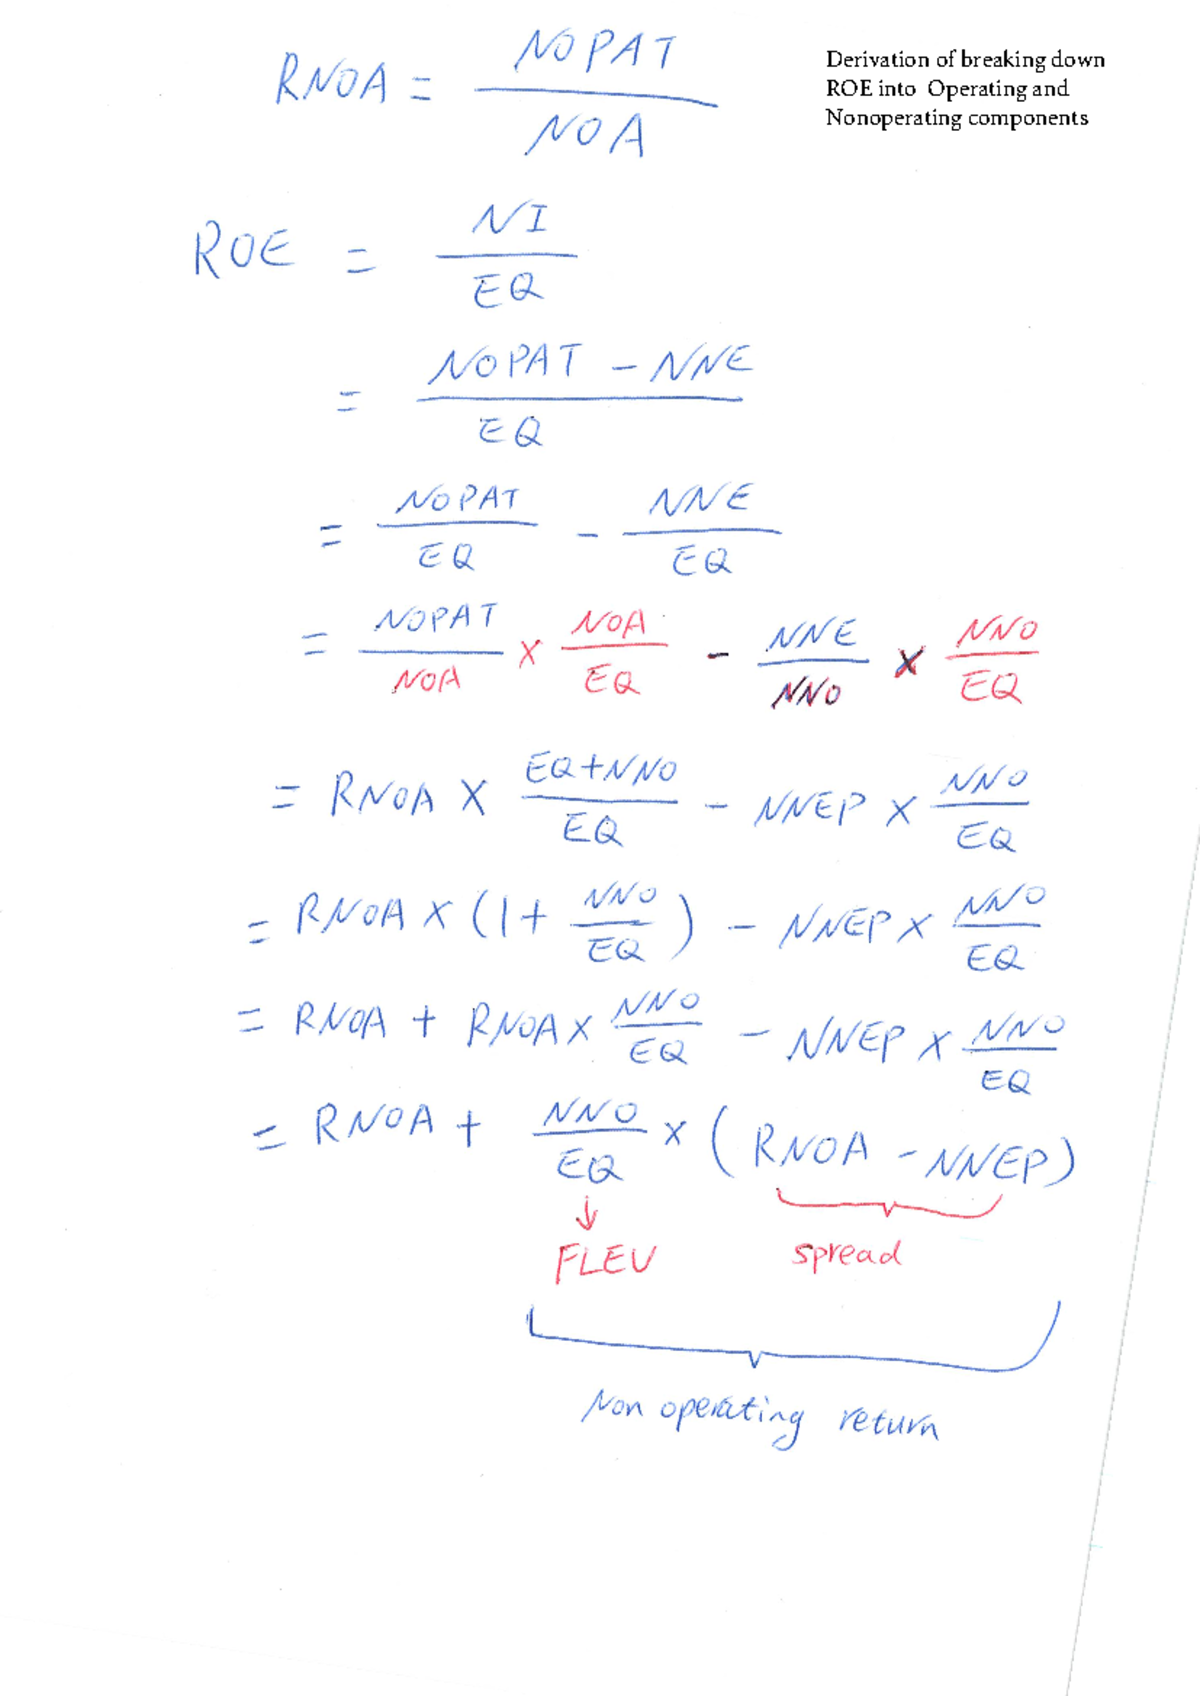 RNOA = NOPAT / NOA
Derivation of breaking down
ROE into Operating and
Nonoperating components
ROE = NI / EQ
= NOPAT - NNE / EQ
= NOPAT / EQ - NNE / EQ
= NOPAT / NOA × NOA / EQ - NNE / NNO × NNO / EQ
= RNOA × EQ+NNO / EQ - NNEP × NNO / EQ
= RNOA × (1 + NNO / EQ) - NNEP × NNO / EQ
= RNOA + RNOA × NNO / EQ - NNEP × NNO / EQ
= RNOA + NNO / EQ × (RNOA - NNEP)
↓
FLEV spread
Non operating return